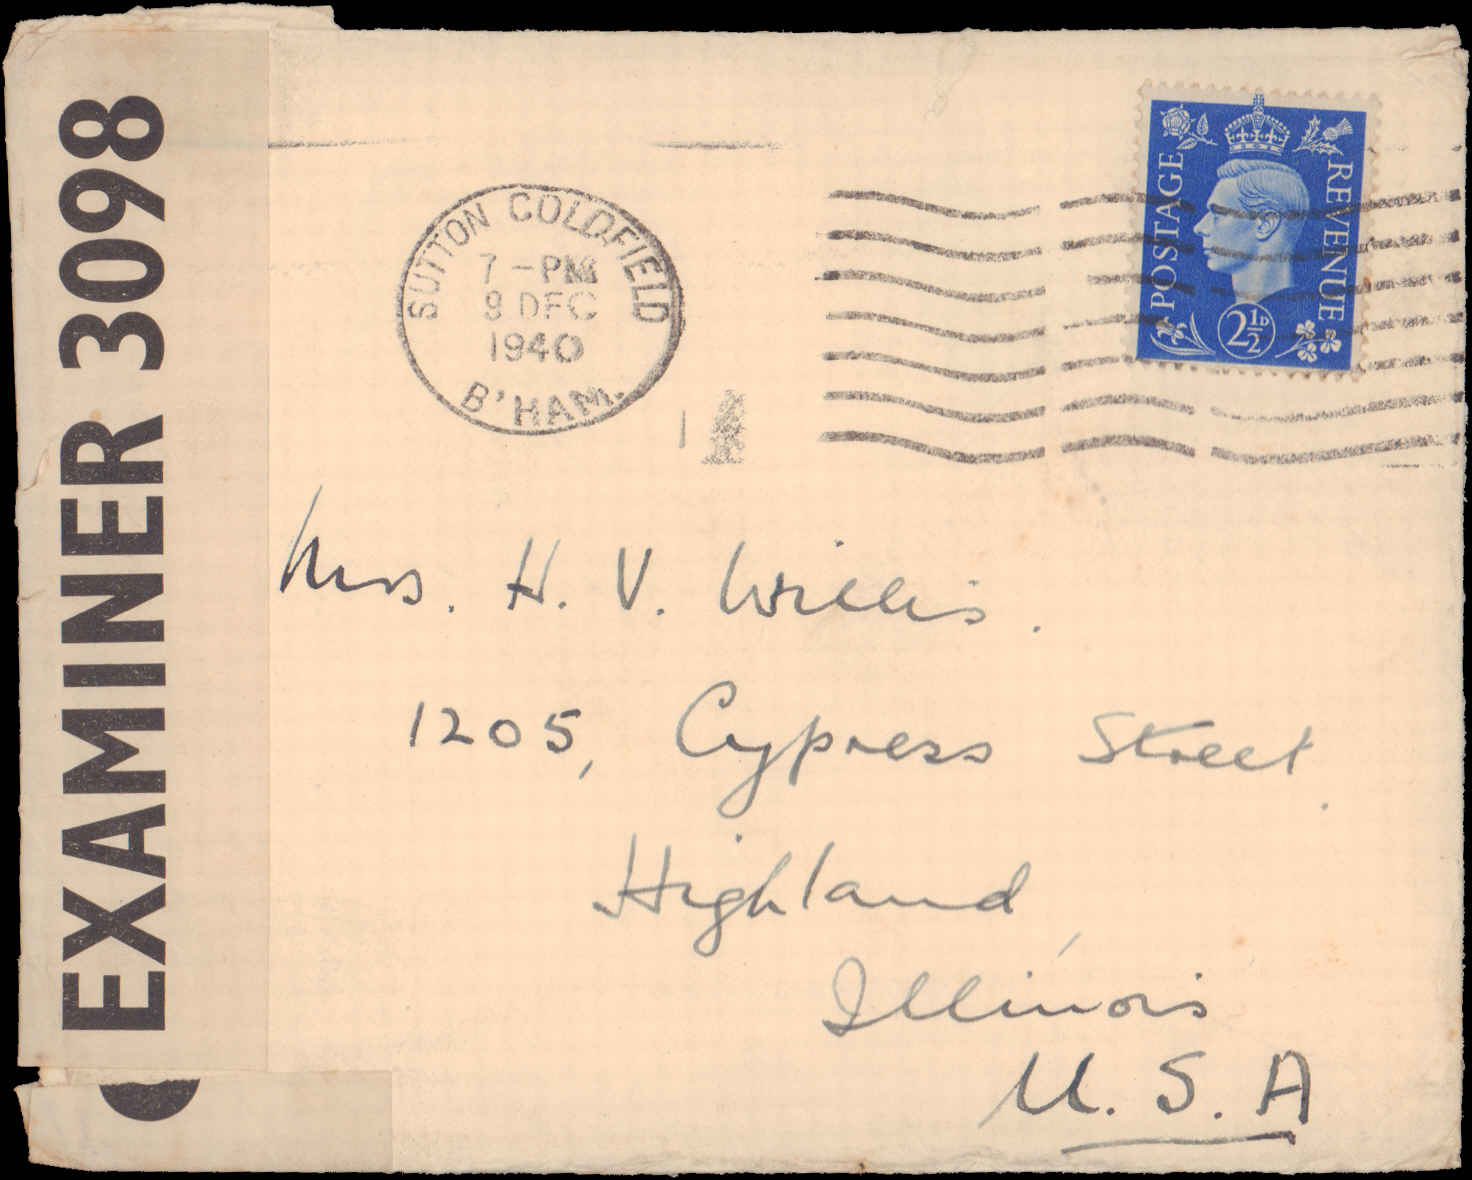 EXAMINER 3098
SUTTON COLDFIELD
7-PM
9 DEC
1940
B'HAM.
POSTAGE
REVENUE
2½D
Mrs. H. V. Willis.
1205, Cypress Street.
Highland,
Illinois
U.S.A